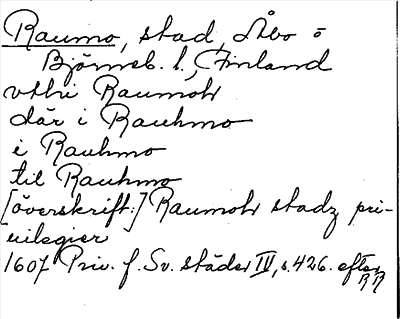 Raumo, stad, Åbo o
Björneb. l., Finland
vthi Raumoh
där i Rauhmo
i Rauhmo
til Rauhmo
[överskrift:] Raumoh stadz pri-
uilegier
1607 Priv. f. Sv. städer IV, s. 426. efter
RR